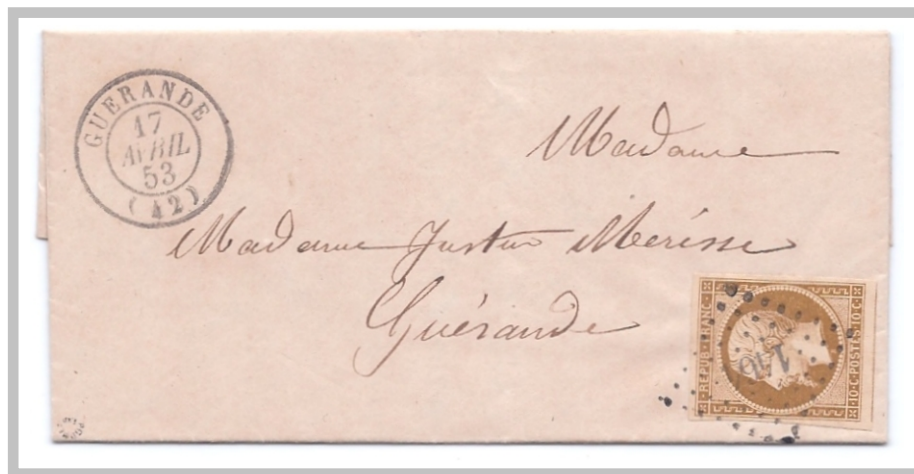 GUERANDE
17
AVRIL
53
(42)
Madame
Madame Justin Merisse
Guérande
REPUB. FRANC.
10.C.POSTES.10.C.